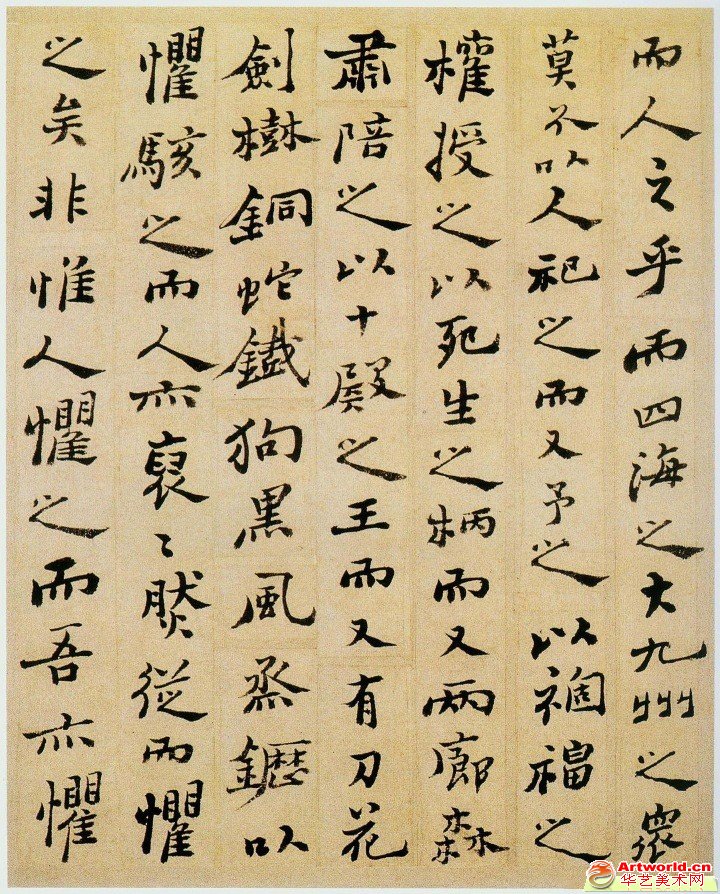 而人之乎而四海之大九州之眾
莫不以人祀之而又予之以禍福之
權授之以死生之柄而又兩廊森
肅陪之以十殿之王而又有刀花
劍樹銅蛇鐵狗黑風烝䥶以
懼駭之而人亦裒々然從而懼
之矣非惟人懼之而吾亦懼
Artworld.cn
华艺美术网